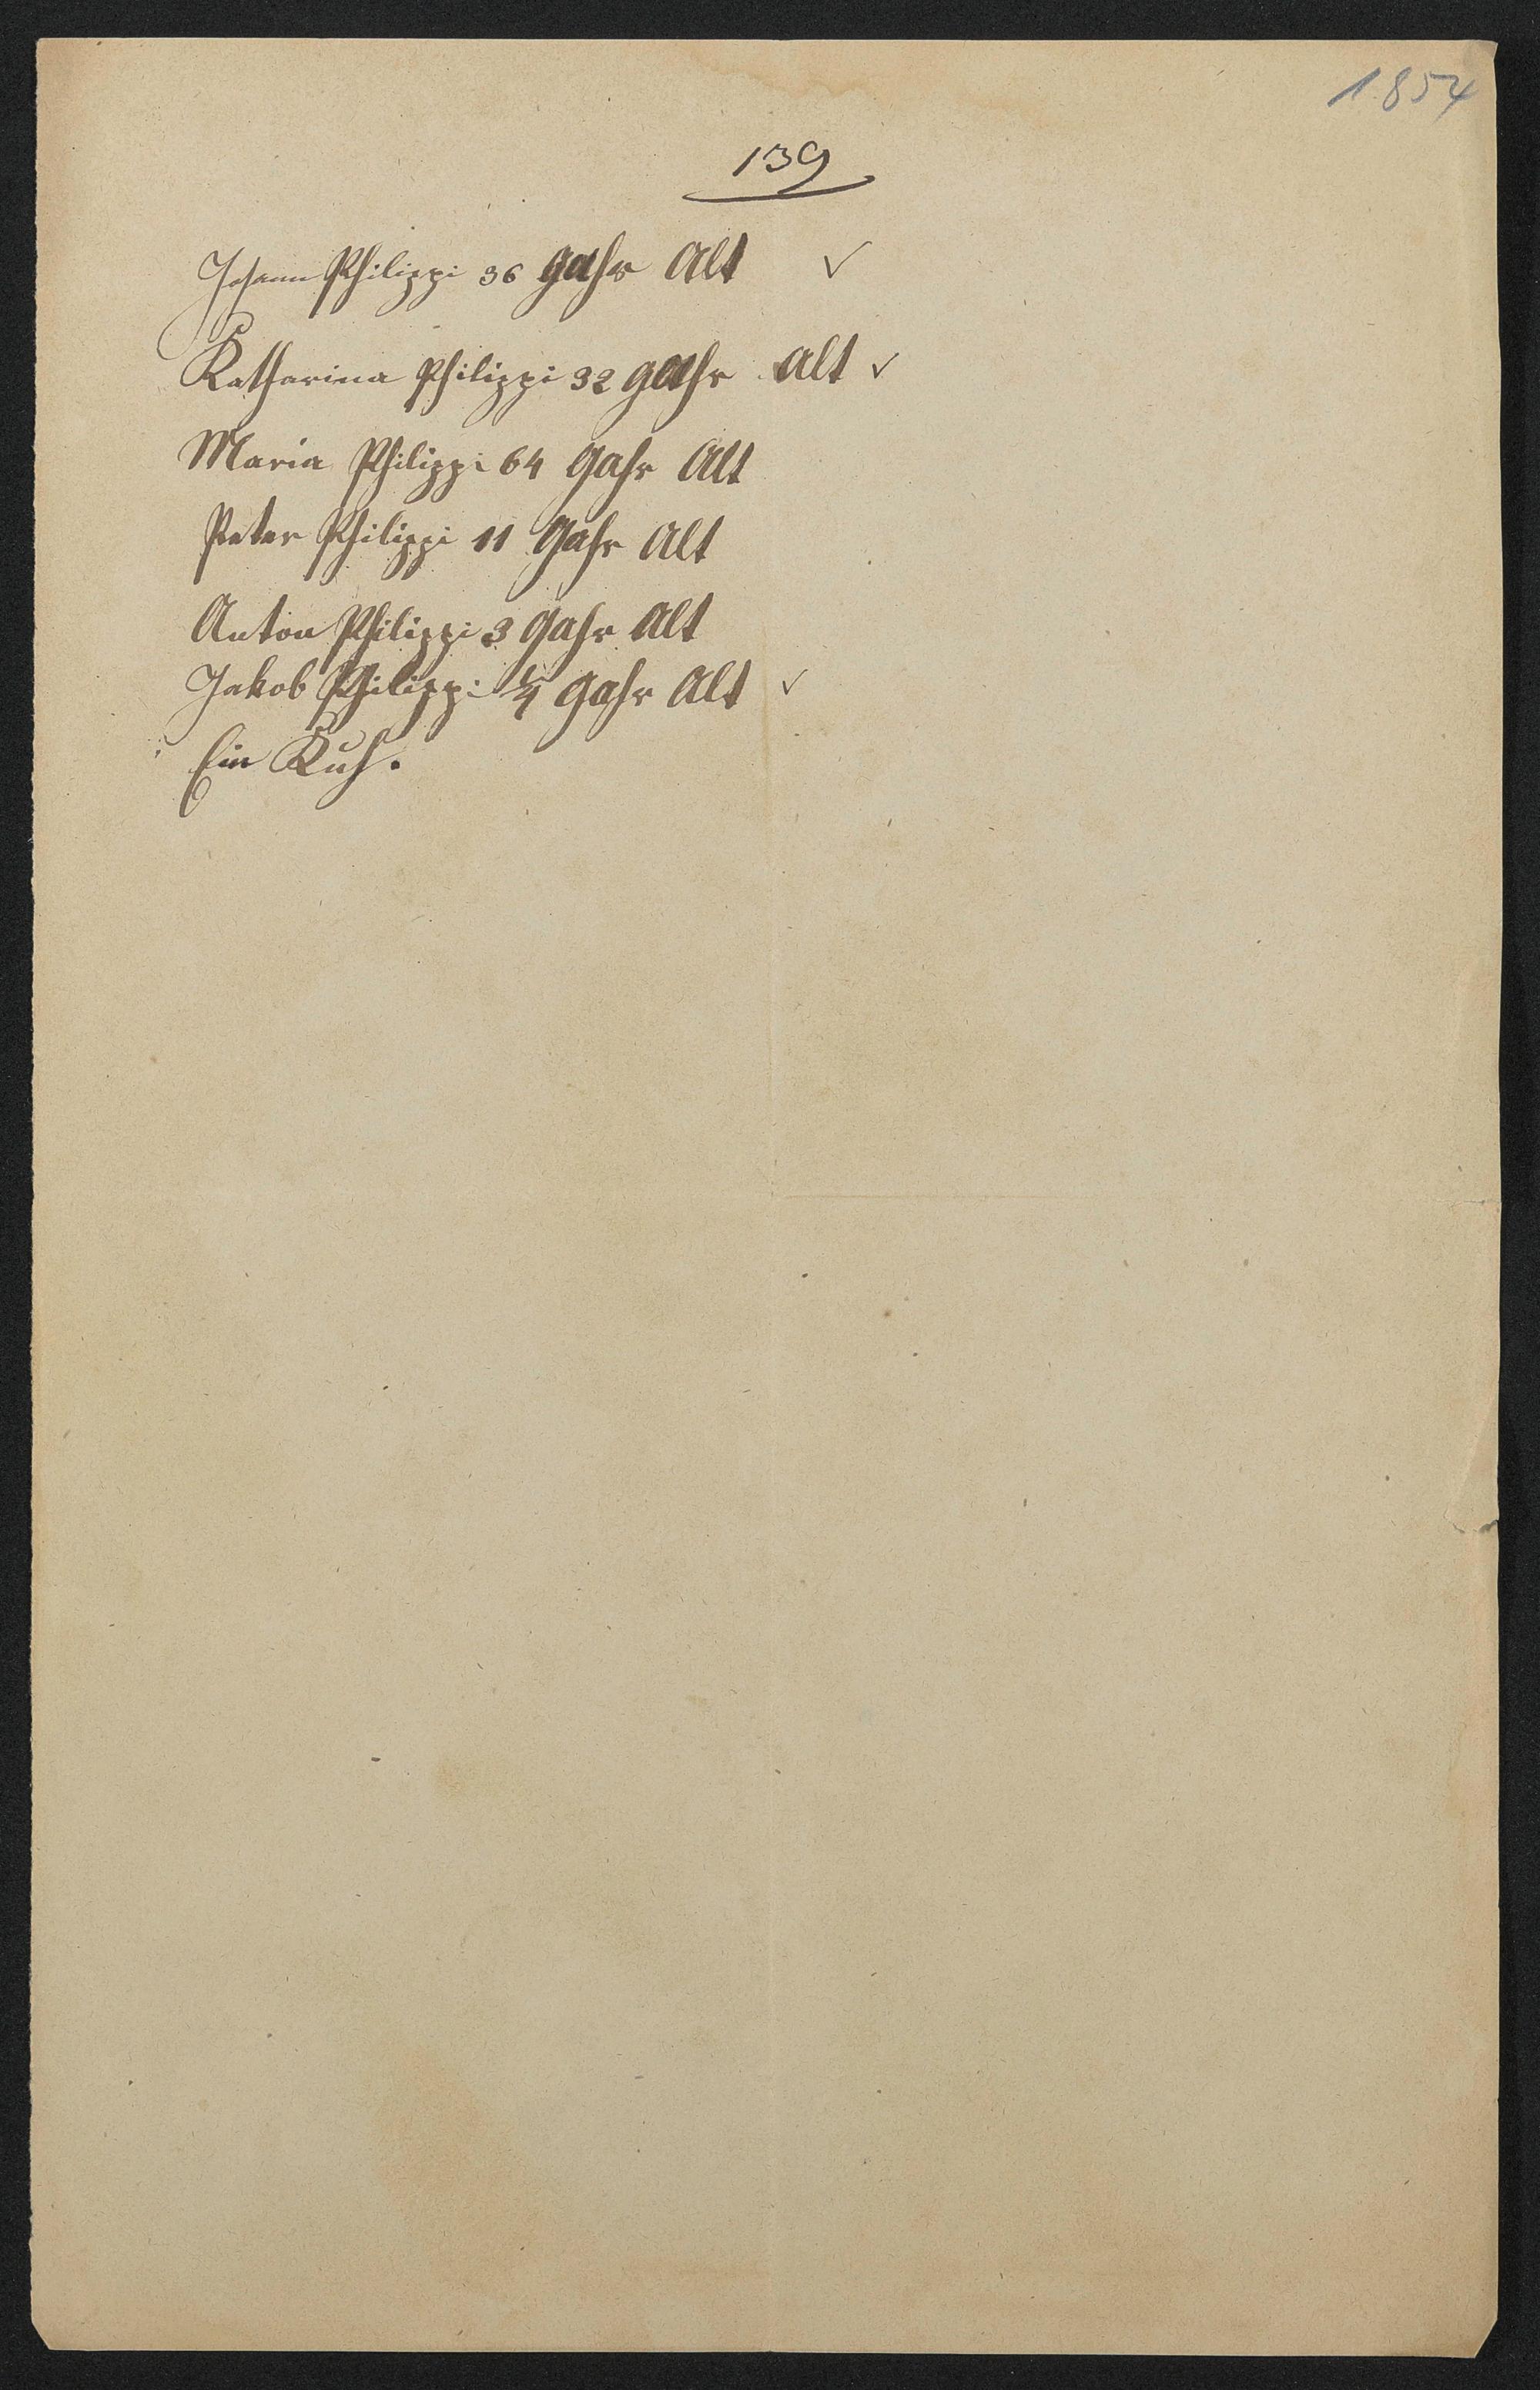 1854
139
Johann Philippi 36 Jahr Alt ✓
Katharina Philippi 32 Jahr Alt ✓
Maria Philippi 64 Jahr Alt
Peter Philippi 11 Jahr Alt
Anton Philippi 3 Jahr Alt
Jakob Philippi ¼ Jahr Alt ✓
Ein Kuh.